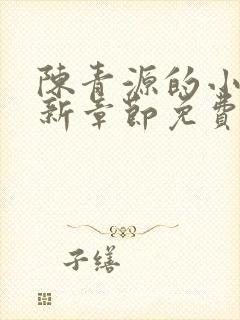 陳青源的小
新章節免費
子繕